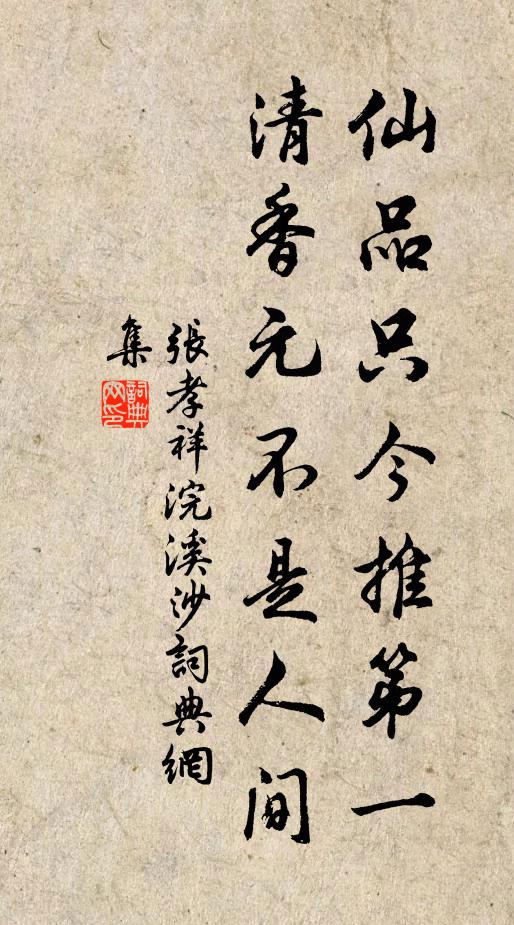 仙品只今推第一
清香元不是人间
張孝祥浣溪沙詞典網
集
詞典
网印